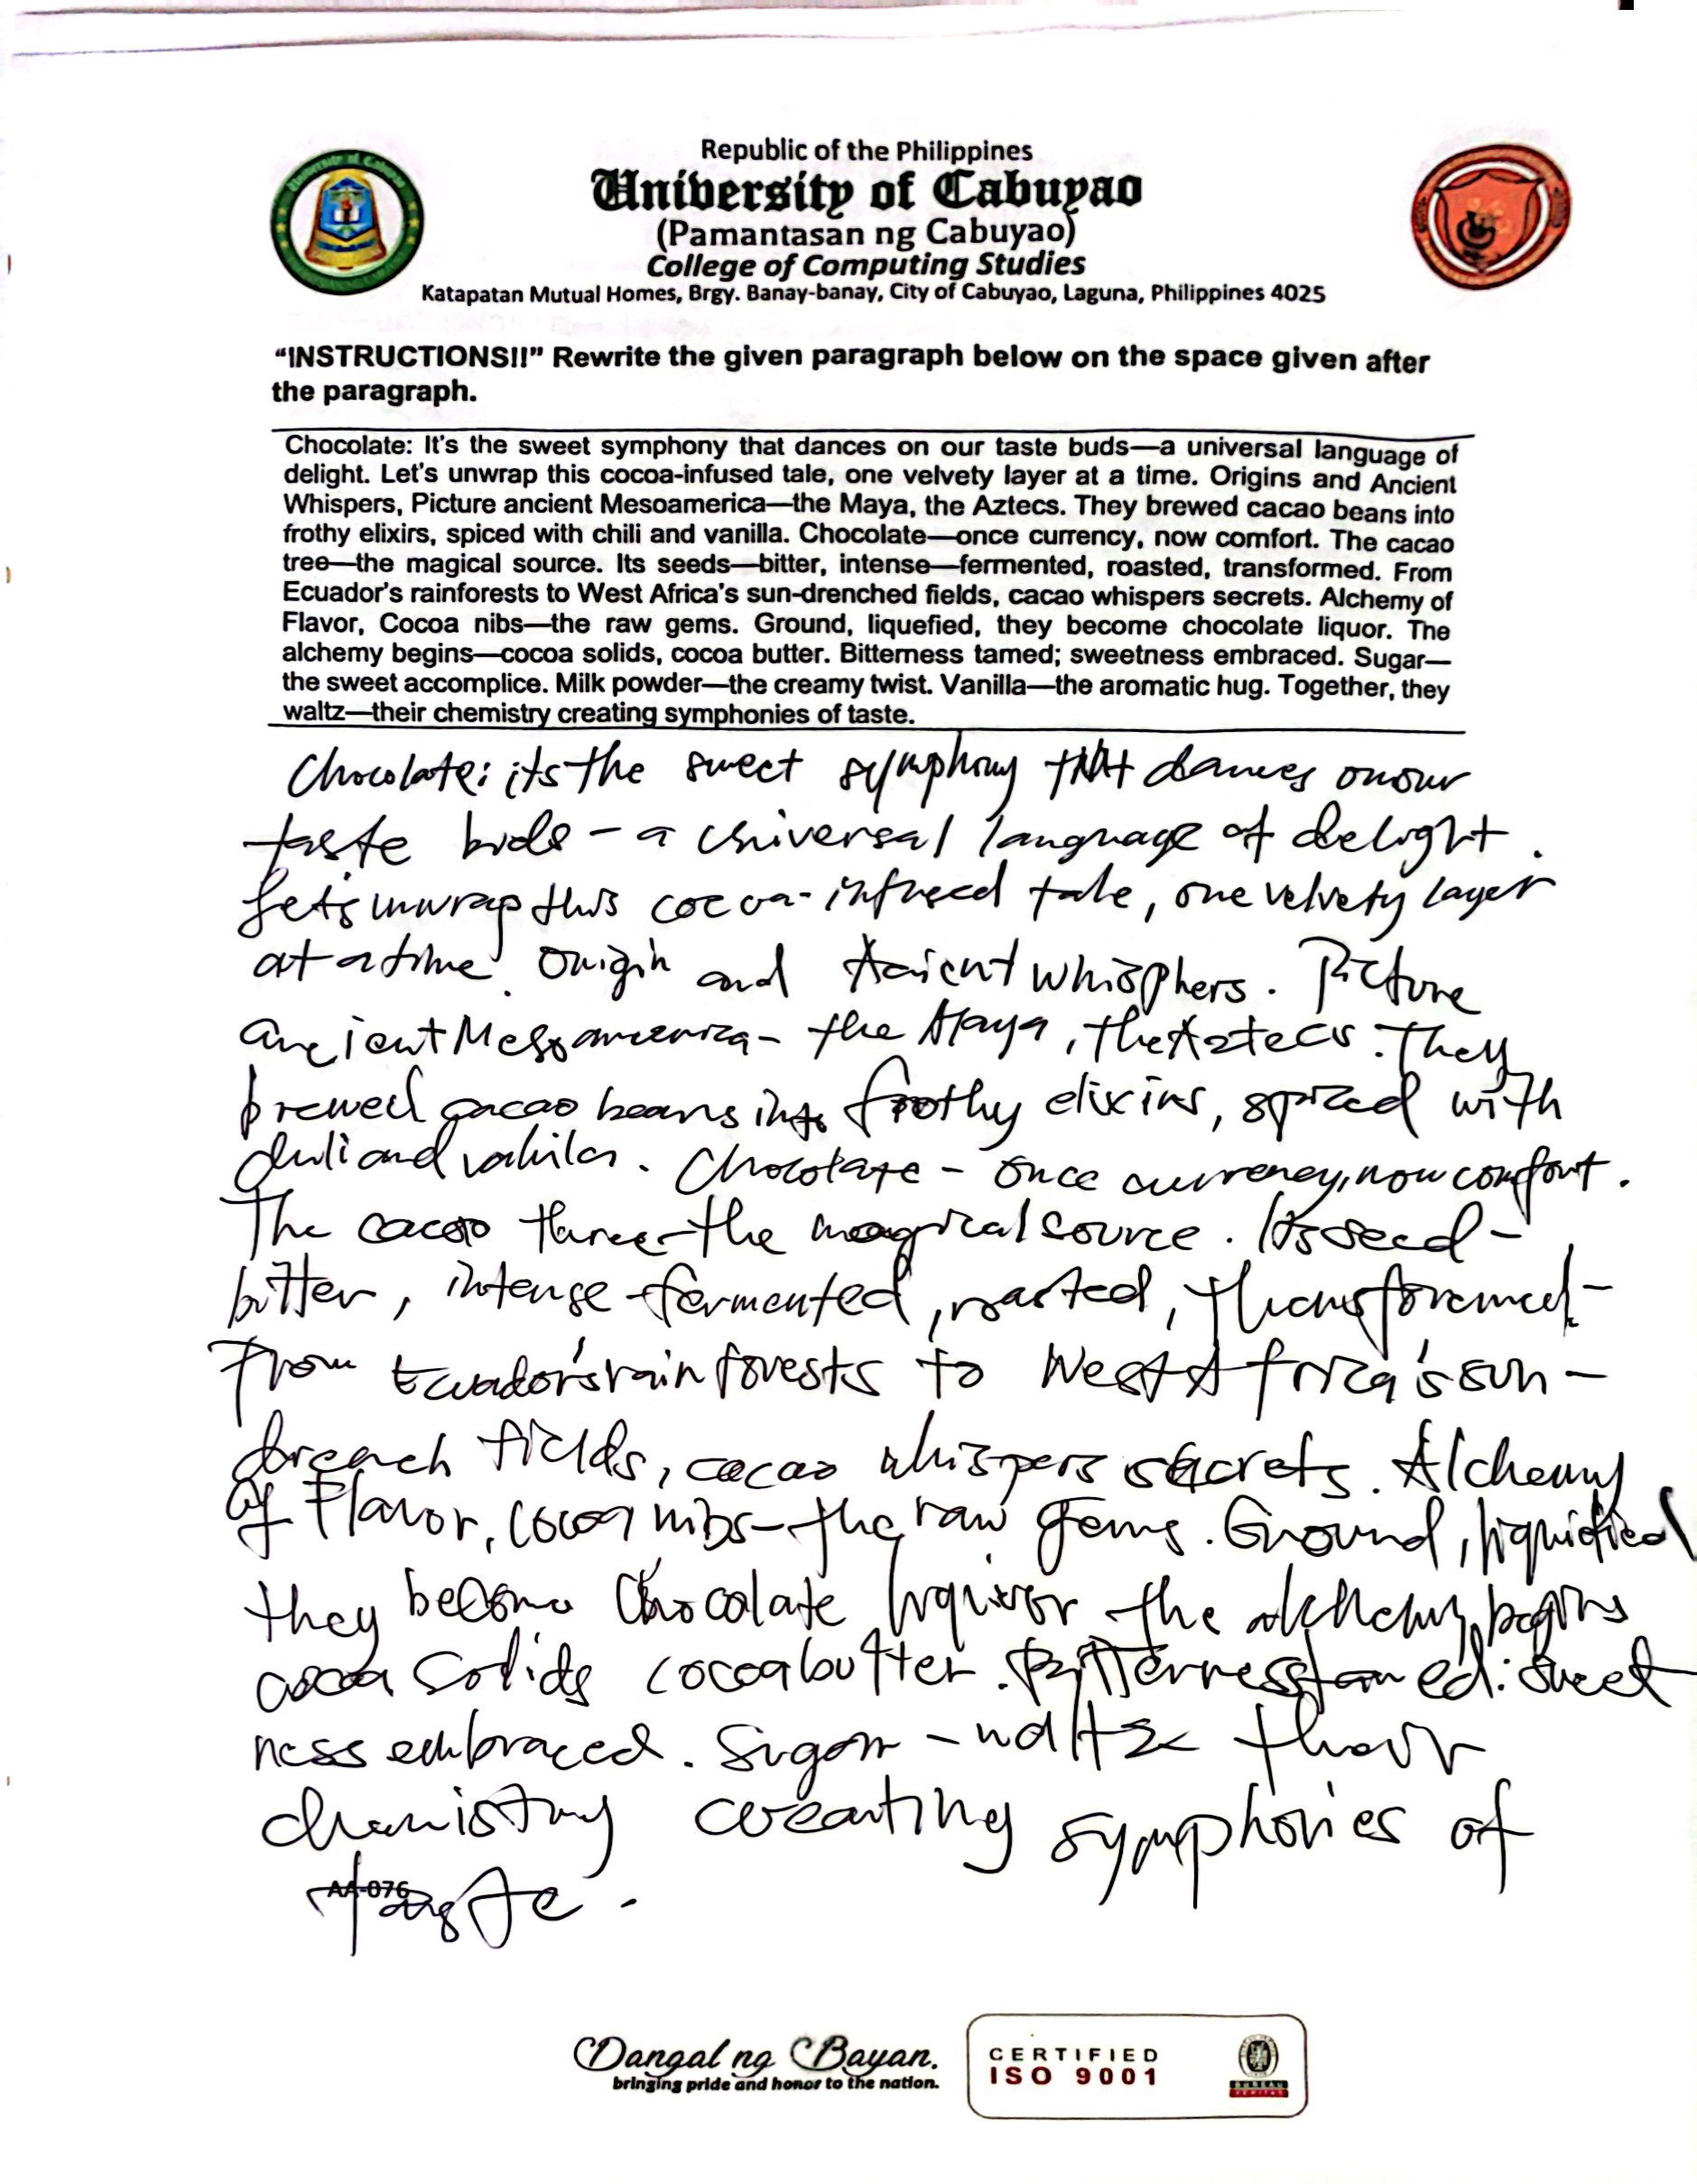 Republic of the Philippines
University of Cabuyao
(Pamantasan ng Cabuyao)
College of Computing Studies
Katapatan Mutual Homes, Brgy. Banay-banay, City of Cabuyao, Laguna, Philippines 4025
“INSTRUCTIONS!!” Rewrite the given paragraph below on the space given after
the paragraph.
Chocolate: It's the sweet symphony that dances on our taste buds—a universal language of
delight. Let's unwrap this cocoa-infused tale, one velvety layer at a time. Origins and Ancient
Whispers, Picture ancient Mesoamerica—the Maya, the Aztecs. They brewed cacao beans into
frothy elixirs, spiced with chili and vanilla. Chocolate—once currency, now comfort. The cacao
tree—the magical source. Its seeds—bitter, intense—fermented, roasted, transformed. From
Ecuador's rainforests to West Africa's sun-drenched fields, cacao whispers secrets. Alchemy of
Flavor, Cocoa nibs—the raw gems. Ground, liquefied, they become chocolate liquor. The
alchemy begins—cocoa solids, cocoa butter. Bitterness tamed; sweetness embraced. Sugar—
the sweet accomplice. Milk powder—the creamy twist. Vanilla—the aromatic hug. Together, they
waltz—their chemistry creating symphonies of taste.
Chocolate: its the sweet symphony that dances on our
taste buds - a universal language of delight.
Let's unwrap this cocoa-infused tale, one velvety layer
at a time. Origin and Ancient whisphers. Picture
ancient Mesoamerica - the Maya, the Aztecs. They
brewed cacao beans into frothy elixirs, spiced with
chili and vanilla. Chocolate - once currency, now comfort.
The cacao - the magical source. Its seed -
bitter, intense - fermented, roasted,
From Ecuador's rainforests to West Africa's sun -
fields, cacao whispers secrets. Alchemy
of Flavor, Cocoa nibs - the raw gems. Ground, liquified
they become Chocolate the alchemy begins
cocoa solids cocoa butter. Bitterness tamed: sweet
ness embraced. Sugar - waltz their
chemistry creating symphonies of
taste.
AA-076
Dangal ng Bayan.
bringing pride and honor to the nation.
CERTIFIED
ISO 9001
BUREAU
VERITAS